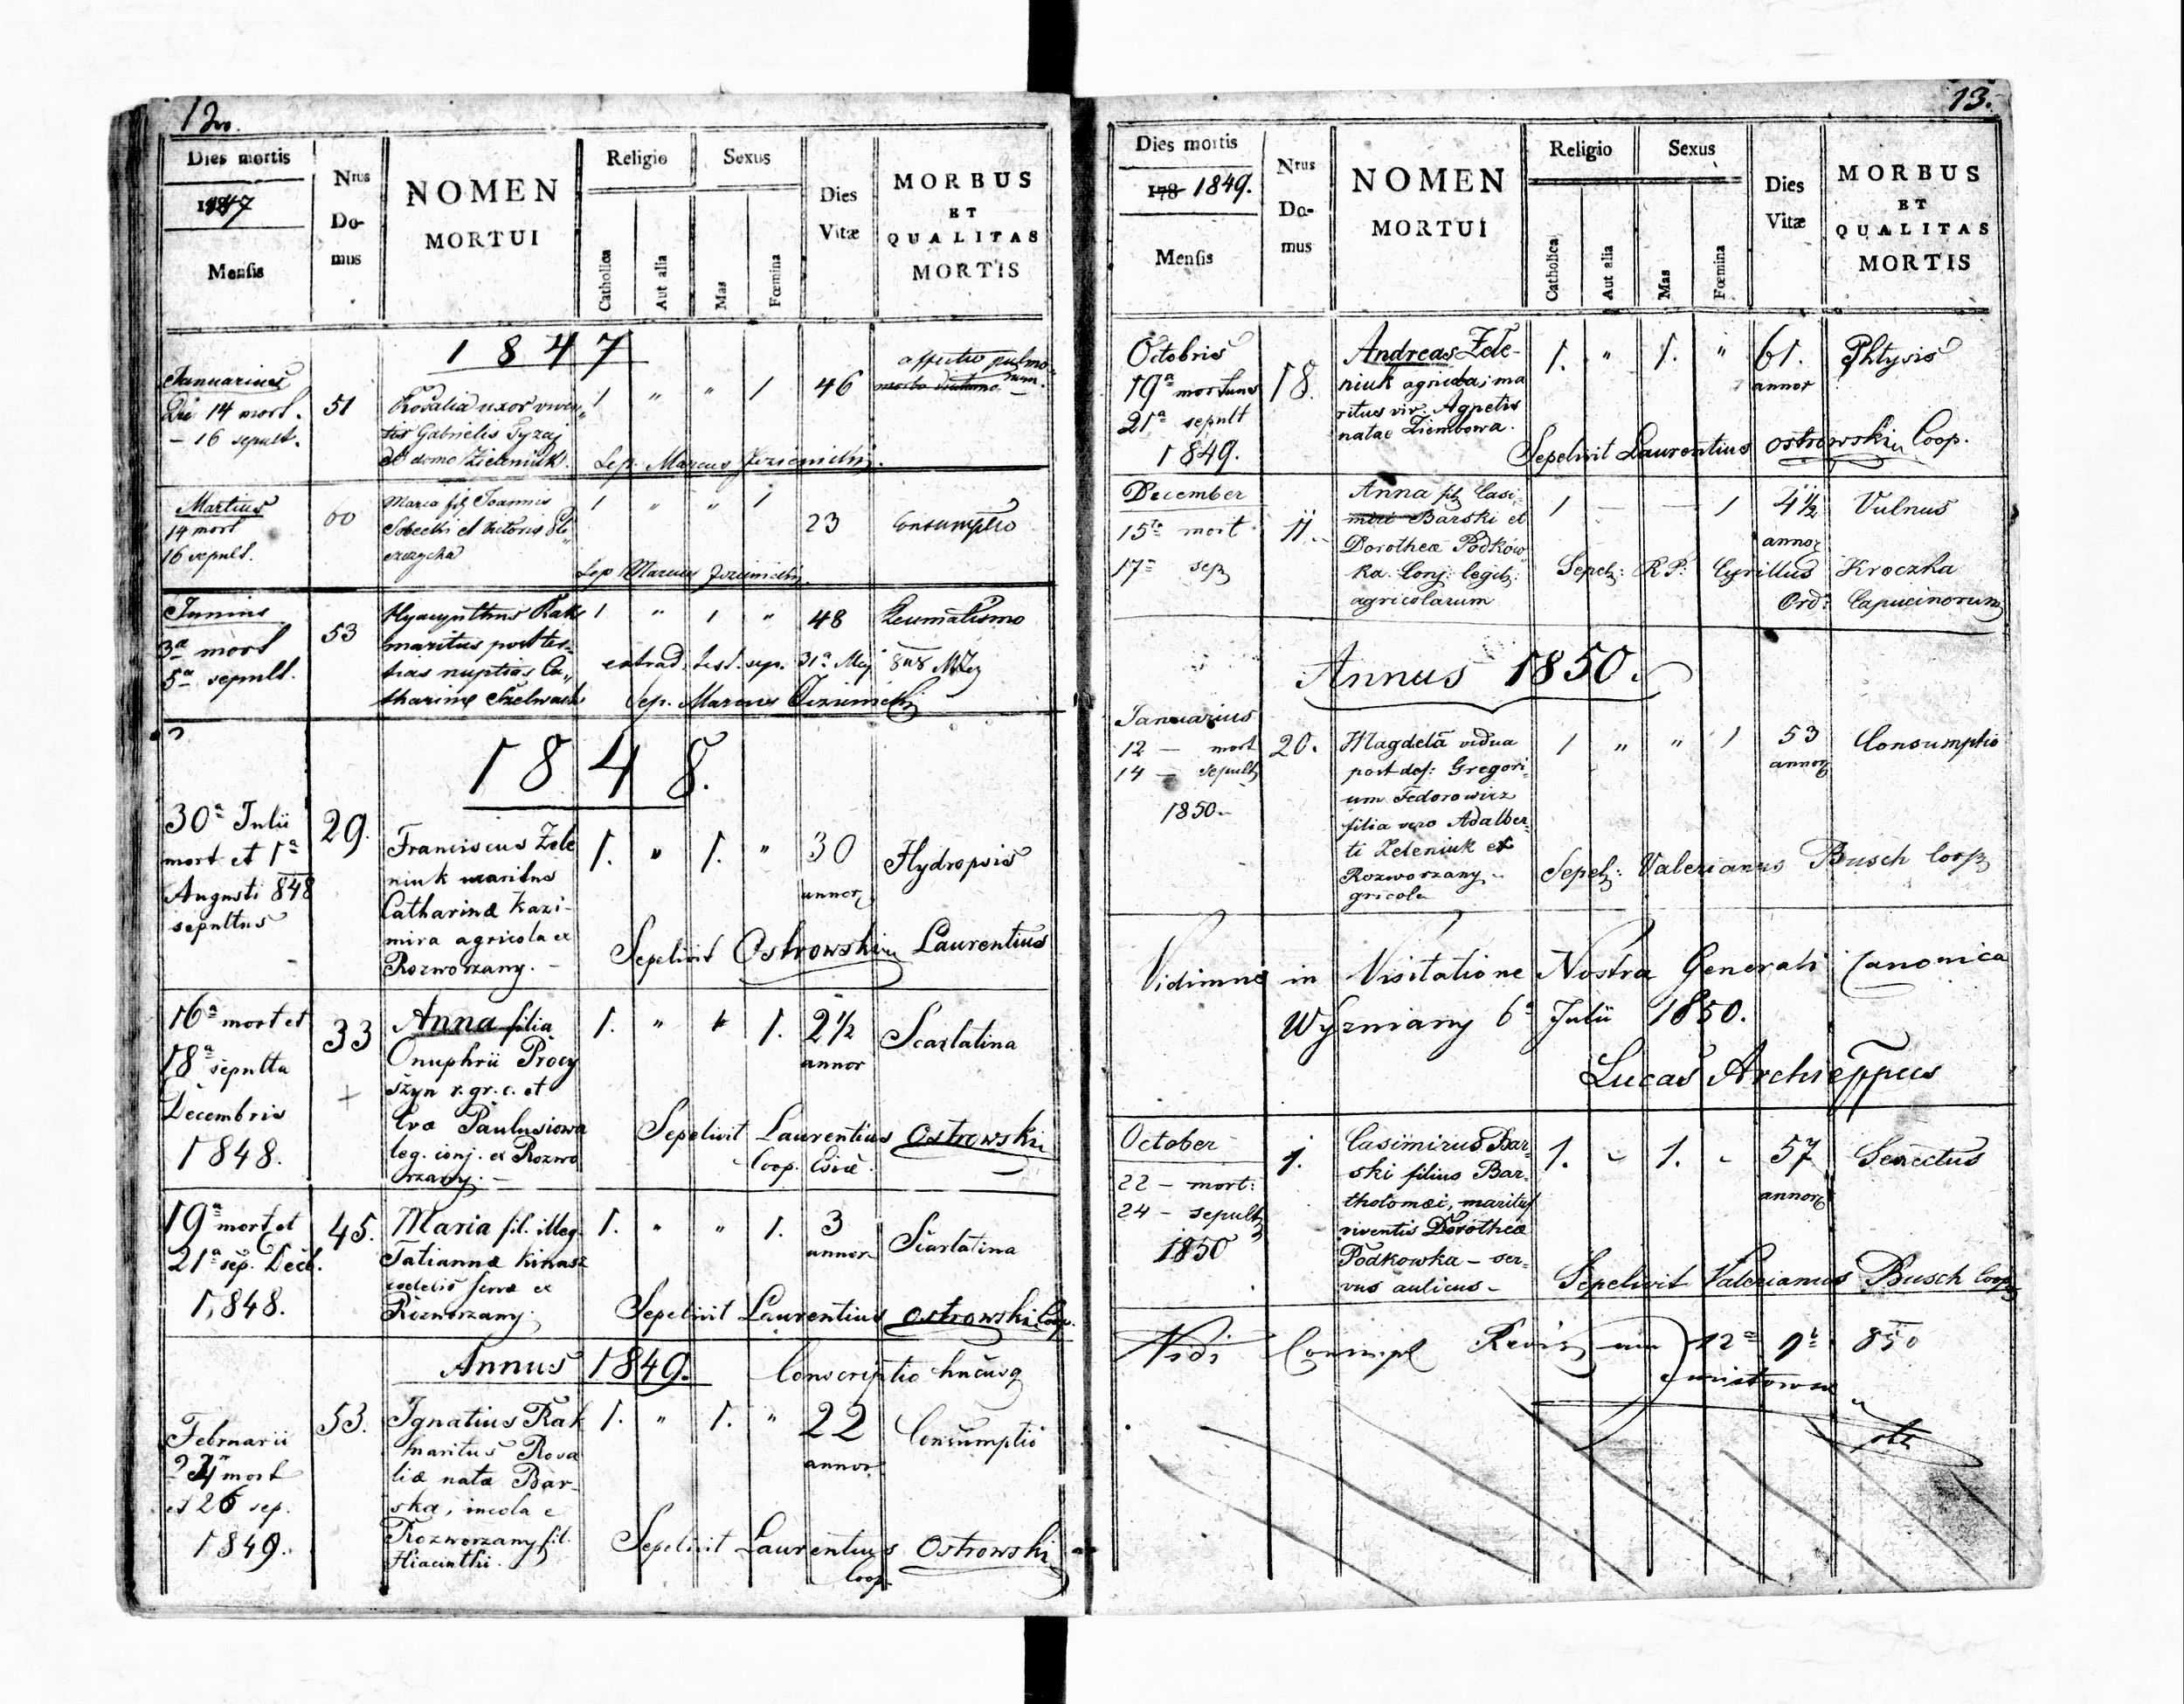 12
Dies mortis
1847
Mensis
Nrus
Do-
mus
NOMEN
MORTUI
Religio
Catholica
Aut alia
Sexus
Mas
Fœmina
Dies
Vitæ
MORBUS
ET
QUALITAS
MORTIS
1847
Januarius
Die 14 mort.
– 16 sepult.
51
Rosalia uxor viven„
tis Gabrielis Tyzaj
de domo Zieleniuk.
1 „ „ 1
46
affectio pulmo„
num.
Sep. Marcus
Martius
14 mort
16 sepult.
60
Maria fil Joannis
Sobecki et
1 „ „ 1
23
Consumptio
Sep Marcus
Junius
3a mort
5a sepult.
53
Hyacynthus Rak
maritus post ter„
tias nuptias Ca„
tharinæ Szelwach
1 „ 1 „
48
Reumatismo
extrad. test. sep. 31a Maj 848
Sep. Marcus
1848.
30a Julii
mort et 1a
Augusti 848
sepultus
29.
Franciscus Zele
niuk maritus
Catharinæ Kazi-
mira agricola ex
Rozworzany. –
1. „ 1. „
30
annor
Hydropsis
Sepelivit Ostrowski Laurentius
16a mort et
18a sepulta
Decembris
1848.
33
+
Anna filia
Onuphrii Procy
szyn r. gr. c. et
Evæ Paulusiowa
leg. conj. ex Rozwo
rzany. –
1. „ „ 1.
2 1/2
annor
Scarlatina
Sepelivit Laurentius Ostrowski
Coop.
19a mort et
21a sep. Dec.
1848.
45.
Maria fil. illeg.
Tatiannæ Kinasz
cœlebis ex
Rozworzany.
1. „ „ 1.
3
annor
Scarlatina
Sepelivit Laurentius Ostrowski Coop.
Annus 1849. Conscriptio hucusq
Februarii
24 mort
et 26 sep.
1849.
53.
Ignatius Rak
maritus Rosa
liæ natæ Bar-
ska, incola e
Rozworzany fil.
Hiacinthi.
1. „ 1. „
22
annor
Consumptio
Sepelivit Laurentius Ostrowski
Coop.
13.
Dies mortis
178 1849.
Mensis
Nrus
Do-
mus
NOMEN
MORTUI
Religio
Catholica
Aut alia
Sexus
Mas
Fœmina
Dies
Vitæ
MORBUS
ET
QUALITAS
MORTIS
Octobris
19a mortuus
21a sepult
1849.
18.
Andreas Zele-
niuk agricola, ma
ritus viv. Agnetis
natae Ziembowa.
1. „ 1. „
61.
annor
Phtysis
Sepelivit Laurentius Ostrowski Coop.
December
15ta mort
17a sep
11.
Anna fil Casi
miri Barski et
Dorotheæ Podków
ka. Conj: legit:
agricolarum
1 — — 1
4 1/2
annor
Vulnus
Sepel: R P: Cyrillus Kroczka
Ord: Capucinorum
Annus 1850.
Januarius
12 — mort
14 — sepult
1850 –
20.
Magdelā vidua
post def: Gregori-
um Fedorowicz
filia vero Adalber-
ti Zeleniuk ex
Rozworzany –
gricola
1 „ „ 1
53
annor
Consumptio
Sepel: Valerianus Busch Coop
Vidimus in Visitatione Nostra Generali Canonica
Wyzniany 6a Julii 1850.
Lucas Archieppus
October
22 – mort:
24 – sepult
1850
1.
Casimirus Bar-
ski filius Bar-
tholomæi, maritus
viventis Dorotheæ
Podkowka – ser-
vus aulicus –
1. – 1. –
57
annor
Senectus
Sepelivit Valerianus Busch Coop
Vidi 12a 9b 850